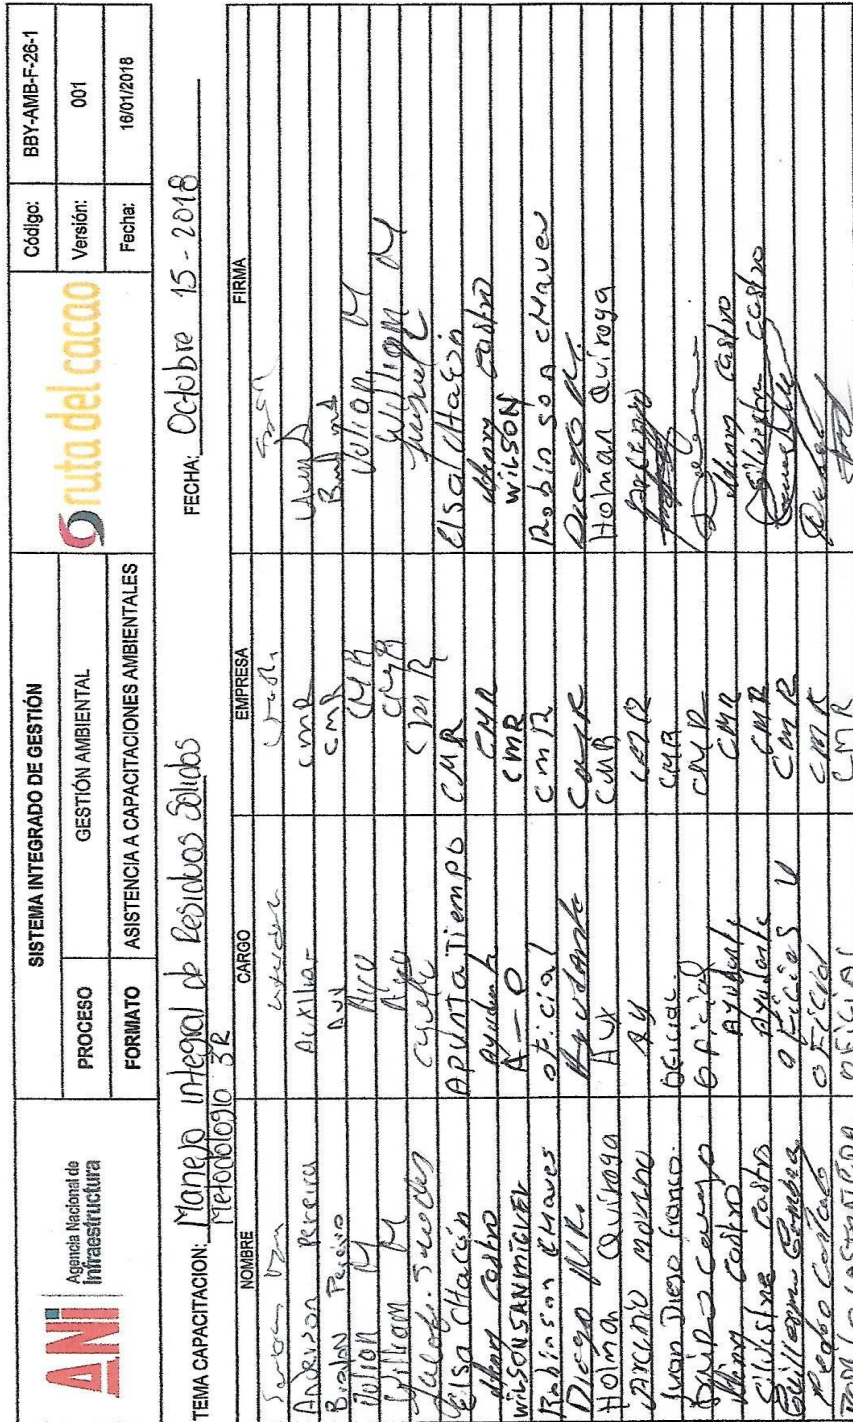 ANI Agencia Nacional de Infraestructura
SISTEMA INTEGRADO DE GESTIÓN
PROCESO GESTIÓN AMBIENTAL
FORMATO ASISTENCIA A CAPACITACIONES AMBIENTALES
ruta del cacao
Código: BBY-AMB-F-26-1
Versión: 001
Fecha: 16/01/2018
TEMA CAPACITACION: Manejo integral de Residuos Sólidos FECHA: Octubre 15-2018
Metodología 3R
NOMBRE CARGO EMPRESA FIRMA
Anderson Pereira Auxiliar CMR
Brayan Pereira Aux CMR
Julian M CMR Julian M
William M CMR William M
CMR
Elsa Chacón APUNTA Tiempo CMR Elsa Chacón
Henry Castro Ayudante CMR Henry Castro
WILSON SANMIGUEL A-O CMR WILSON
Robinson CHaves oficial CMR Robinson CHaves
Diego Ayudante CMR Diego
Holman Quiroga Aux CMR Holman Quiroga
Arcenio Moreno Ay CMR Arcenio
Juan Diego Franco. Oficial. CMR
Oficial CMR
Henry Castro Ayudante CMR Henry Castro
Silvestre Castro Ayudante CMR Silvestre Castro
Guillermo CMR
Pedro oficial CMR
OFICIAL CMR